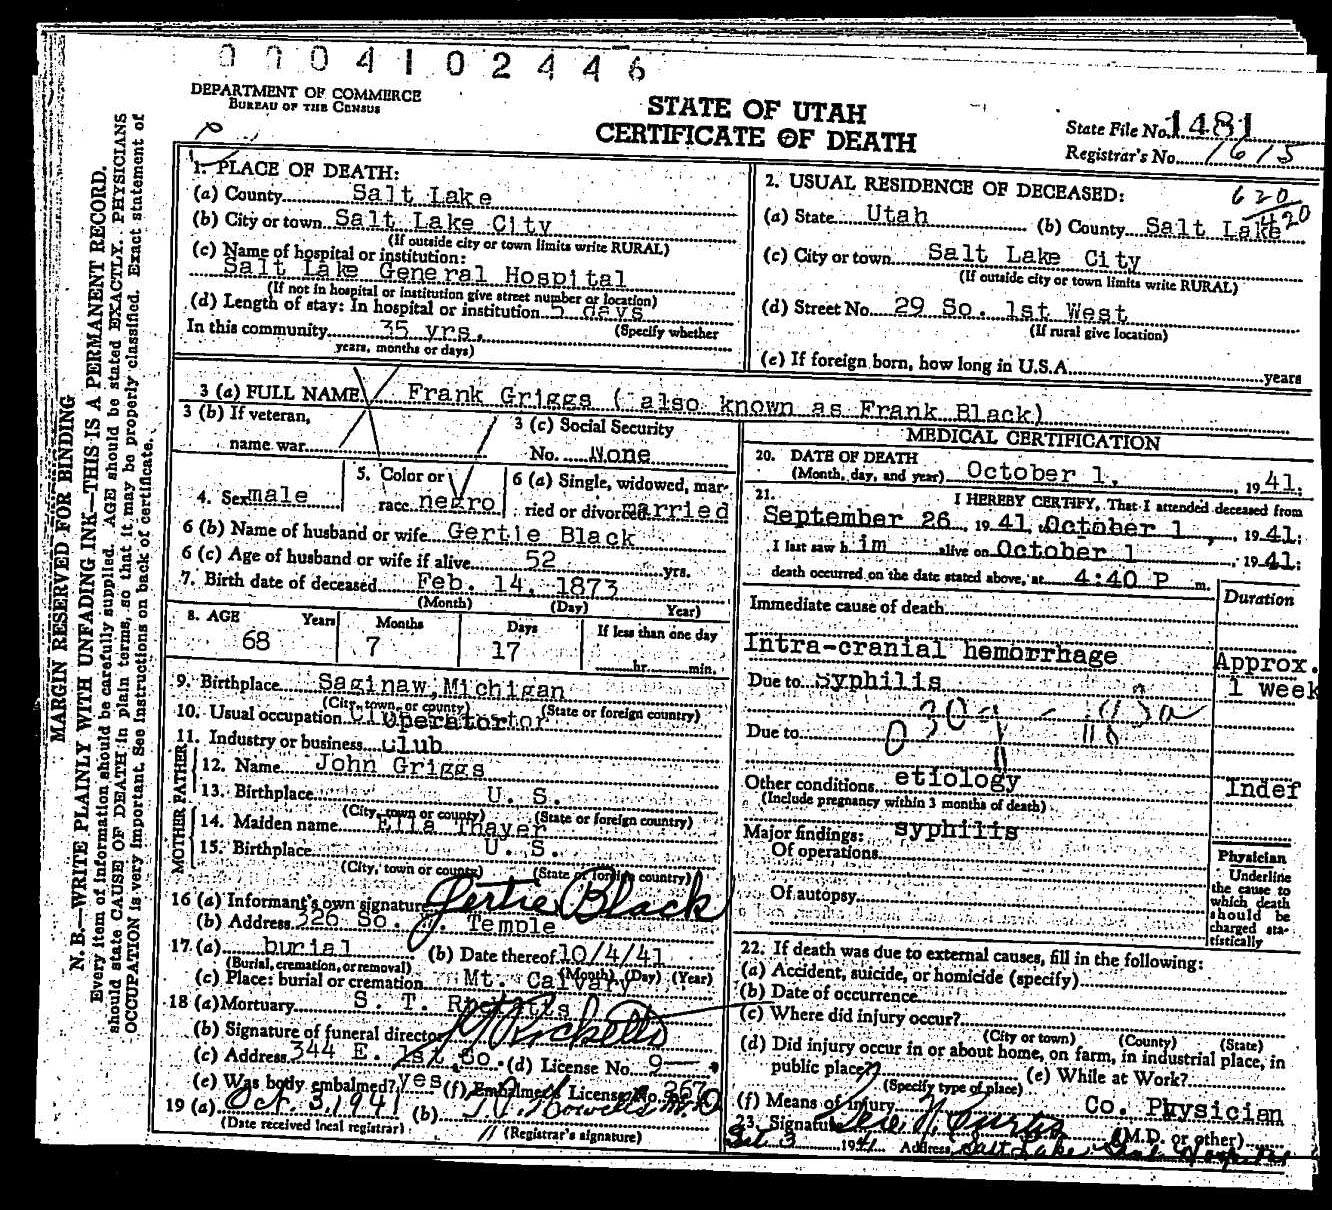 0004102446
DEPARTMENT OF COMMERCE
BUREAU OF THE CENSUS
STATE OF UTAH
CERTIFICATE OF DEATH
State File No. 1481
Registrar's No. 1615
MARGIN RESERVED FOR BINDING
N. B.—WRITE PLAINLY WITH UNFADING INK—THIS IS A PERMANENT RECORD.
Every item of information should be carefully supplied. AGE should be stated EXACTLY. PHYSICIANS
should state CAUSE OF DEATH in plain terms, so that it may be properly classified. Exact statement of
OCCUPATION is very important. See instructions on back of certificate.
1. PLACE OF DEATH:
(a) County Salt Lake
(b) City or town Salt Lake City
(If outside city or town limits write RURAL)
(c) Name of hospital or institution:
Salt Lake General Hospital
(If not in hospital or institution give street number or location)
(d) Length of stay: In hospital or institution 5 days
In this community 35 yrs. (Specify whether
years, months or days)
2. USUAL RESIDENCE OF DECEASED:
620
420
(a) State Utah (b) County Salt Lake
(c) City or town Salt Lake City
(If outside city or town limits write RURAL)
(d) Street No. 29 So. 1st West
(If rural give location)
(e) If foreign born, how long in U.S.A. years
3 (a) FULL NAME Frank Griggs ( also known as Frank Black)
3 (b) If veteran,
name war
3 (c) Social Security
No. None
4. Sex male
5. Color or
race negro
6 (a) Single, widowed, mar-
ried or divorced married
6 (b) Name of husband or wife Gertie Black
6 (c) Age of husband or wife if alive 52 yrs.
7. Birth date of deceased Feb. 14, 1873
(Month) (Day) Year)
8. AGE Years Months Days If less than one day
68 7 17 hr. min.
9. Birthplace Saginaw, Michigan
(City, town, or county) (State or foreign country)
10. Usual occupation Operator
11. Industry or business Club
FATHER
12. Name John Griggs
13. Birthplace U. S.
(City, town or county) (State or foreign country)
MOTHER
14. Maiden name Ella Thayer
15. Birthplace U. S.
(City, town or county) (State or foreign country)
16 (a) Informant's own signature Gertie Black
(b) Address 326 So. Temple
17 (a) burial (b) Date thereof 10/4/41
(Burial, cremation, or removal) (Month) (Day) (Year)
(c) Place: burial or cremation Mt. Calvary
18 (a) Mortuary S. T. Ricketts
(b) Signature of funeral director Ricketts
(c) Address 344 E. 1st So. (d) License No. 9
(e) Was body embalmed? yes (f) Embalmer's License No. 367
19 (a) Oct. 3, 1941 (b) T. J. Howells M.D.
(Date received local registrar) (Registrar's signature)
MEDICAL CERTIFICATION
20. DATE OF DEATH
(Month, day, and year) October 1, 1941.
21. I HEREBY CERTIFY, That I attended deceased from
September 26, 1941, October 1, 1941.
I last saw him alive on October 1, 1941.
death occurred on the date stated above, at 4:40 P m.
Immediate cause of death Duration
Intra-cranial hemorrhage Approx.
1 week
Due to Syphilis
030
Due to
Other conditions etiology Indef
(Include pregnancy within 3 months of death)
Major findings: syphilis
Of operations
Of autopsy
Physician
Underline
the cause to
which death
should be
charged sta-
tistically
22. If death was due to external causes, fill in the following:
(a) Accident, suicide, or homicide (specify)
(b) Date of occurrence
(c) Where did injury occur?
(City or town) (County) (State)
(d) Did injury occur in or about home, on farm, in industrial place, in
public place? (e) While at Work?
(Specify type of place)
(f) Means of injury Co. Physician
23. Signature Geo. N. Curtis (M.D. or other)
Oct 3 1941 Address Salt Lake Genl Hospital